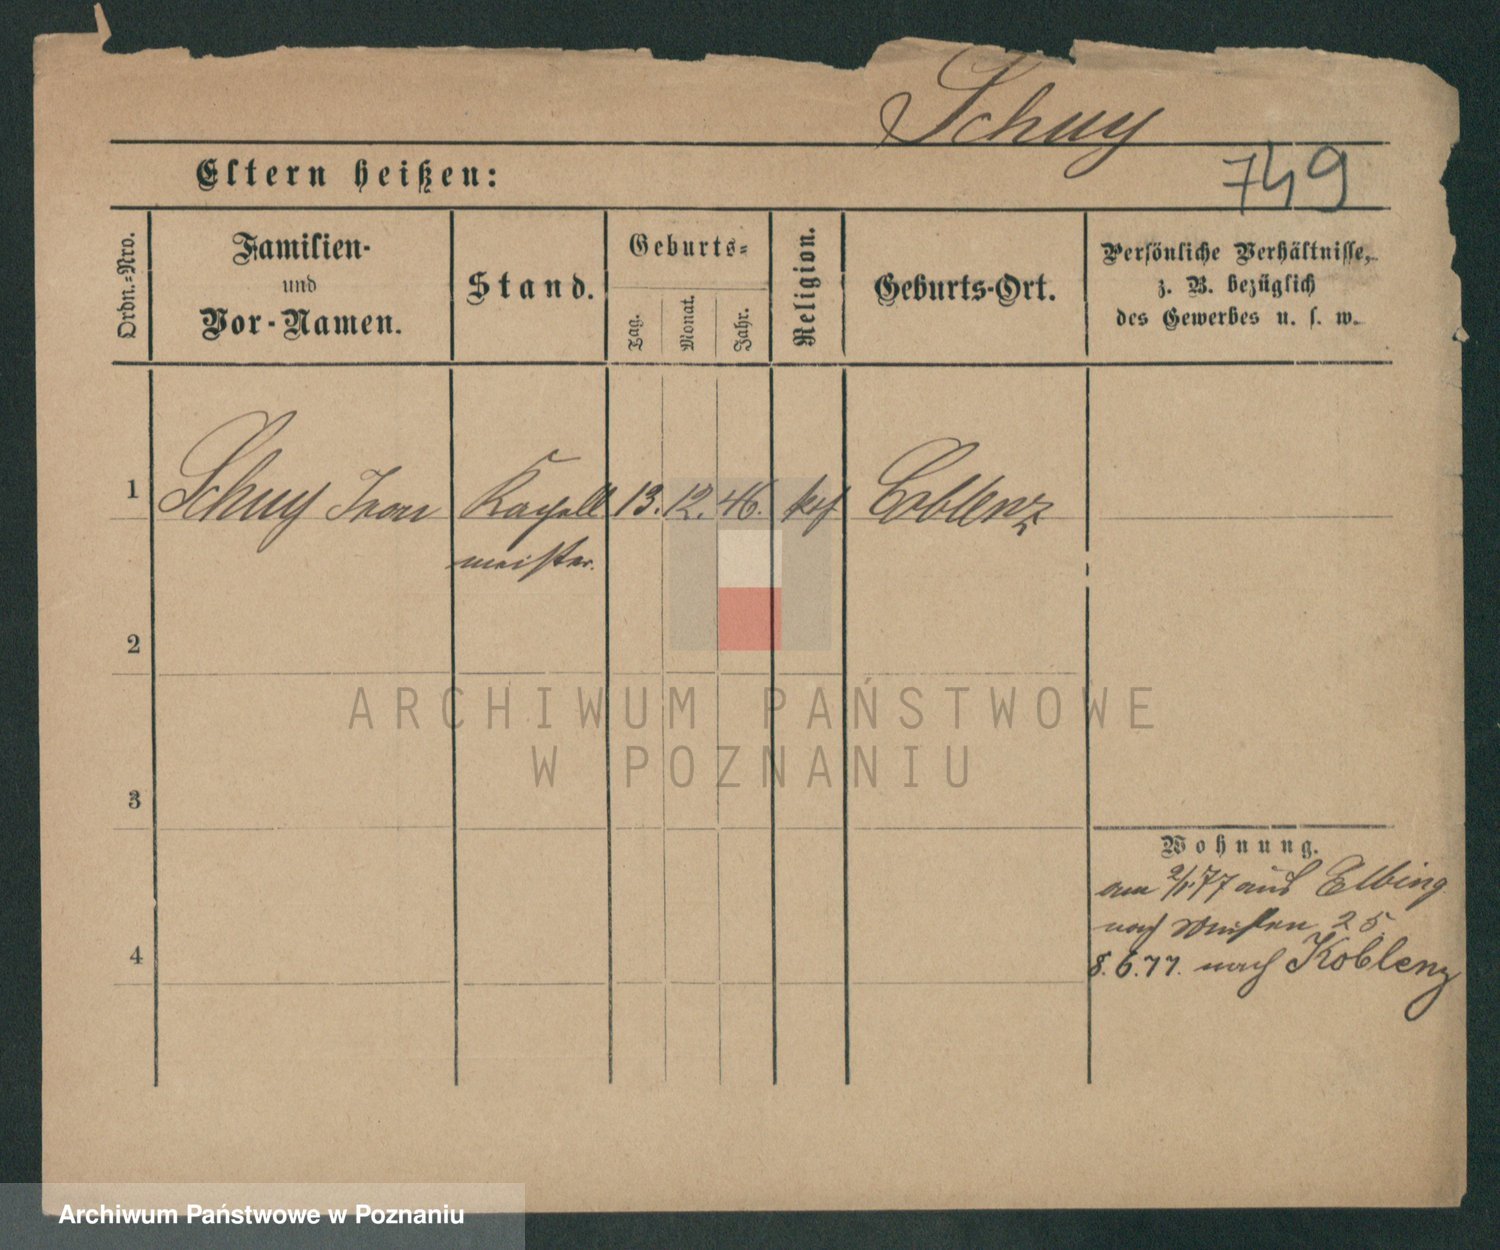 Schuy
749
Eltern heißen:
Ordn.=Nro.
Familien-
und
Vor-Namen.
Stand.
Geburts=
Tag.
Monat.
Jahr.
Religion.
Geburts-Ort.
Persönliche Verhältnisse,
z. B. bezüglich
des Gewerbes u. s. w.
1
Schuy
Kapell
13. 12. 46.
Coblenz
meister.
2
ARCHIWUM PAŃSTWOWE
W POZNANIU
3
Wohnung.
am aus Elbing
nach 25.
4
8.6.77. nach Koblenz
Archiwum Państwowe w Poznaniu